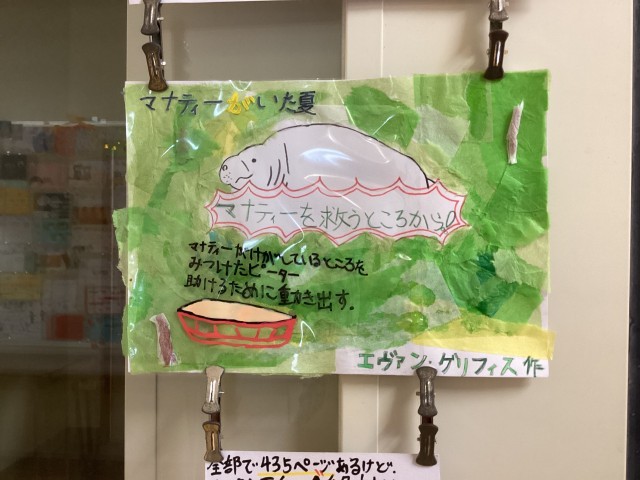 マナティーがいた夏
マナティーを救うところから!
マナティーがけがしているところを
みつけたピーター
助けるために動き出す。
エヴァン・グリフィス作
全部で435ページあるけど、